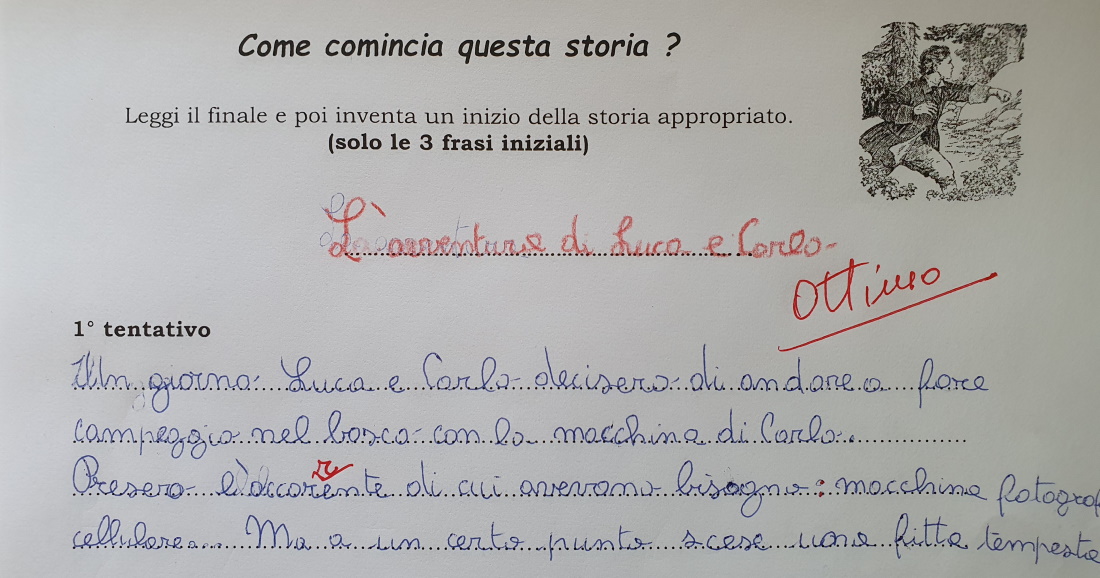 Come comincia questa storia ?
Leggi il finale e poi inventa un inizio della storia appropriato.
(solo le 3 frasi iniziali)
L'avventura di Luca e Carlo
Ottimo
1° tentativo
Un giorno Luca e Carlo decisero di andare a fare
campeggio nel bosco con la macchina di Carlo.
r
Presero l'occorente di cui avevano bisogno: macchina fotograf
cellulare... Ma a un certo punto scese una fitta tempesta